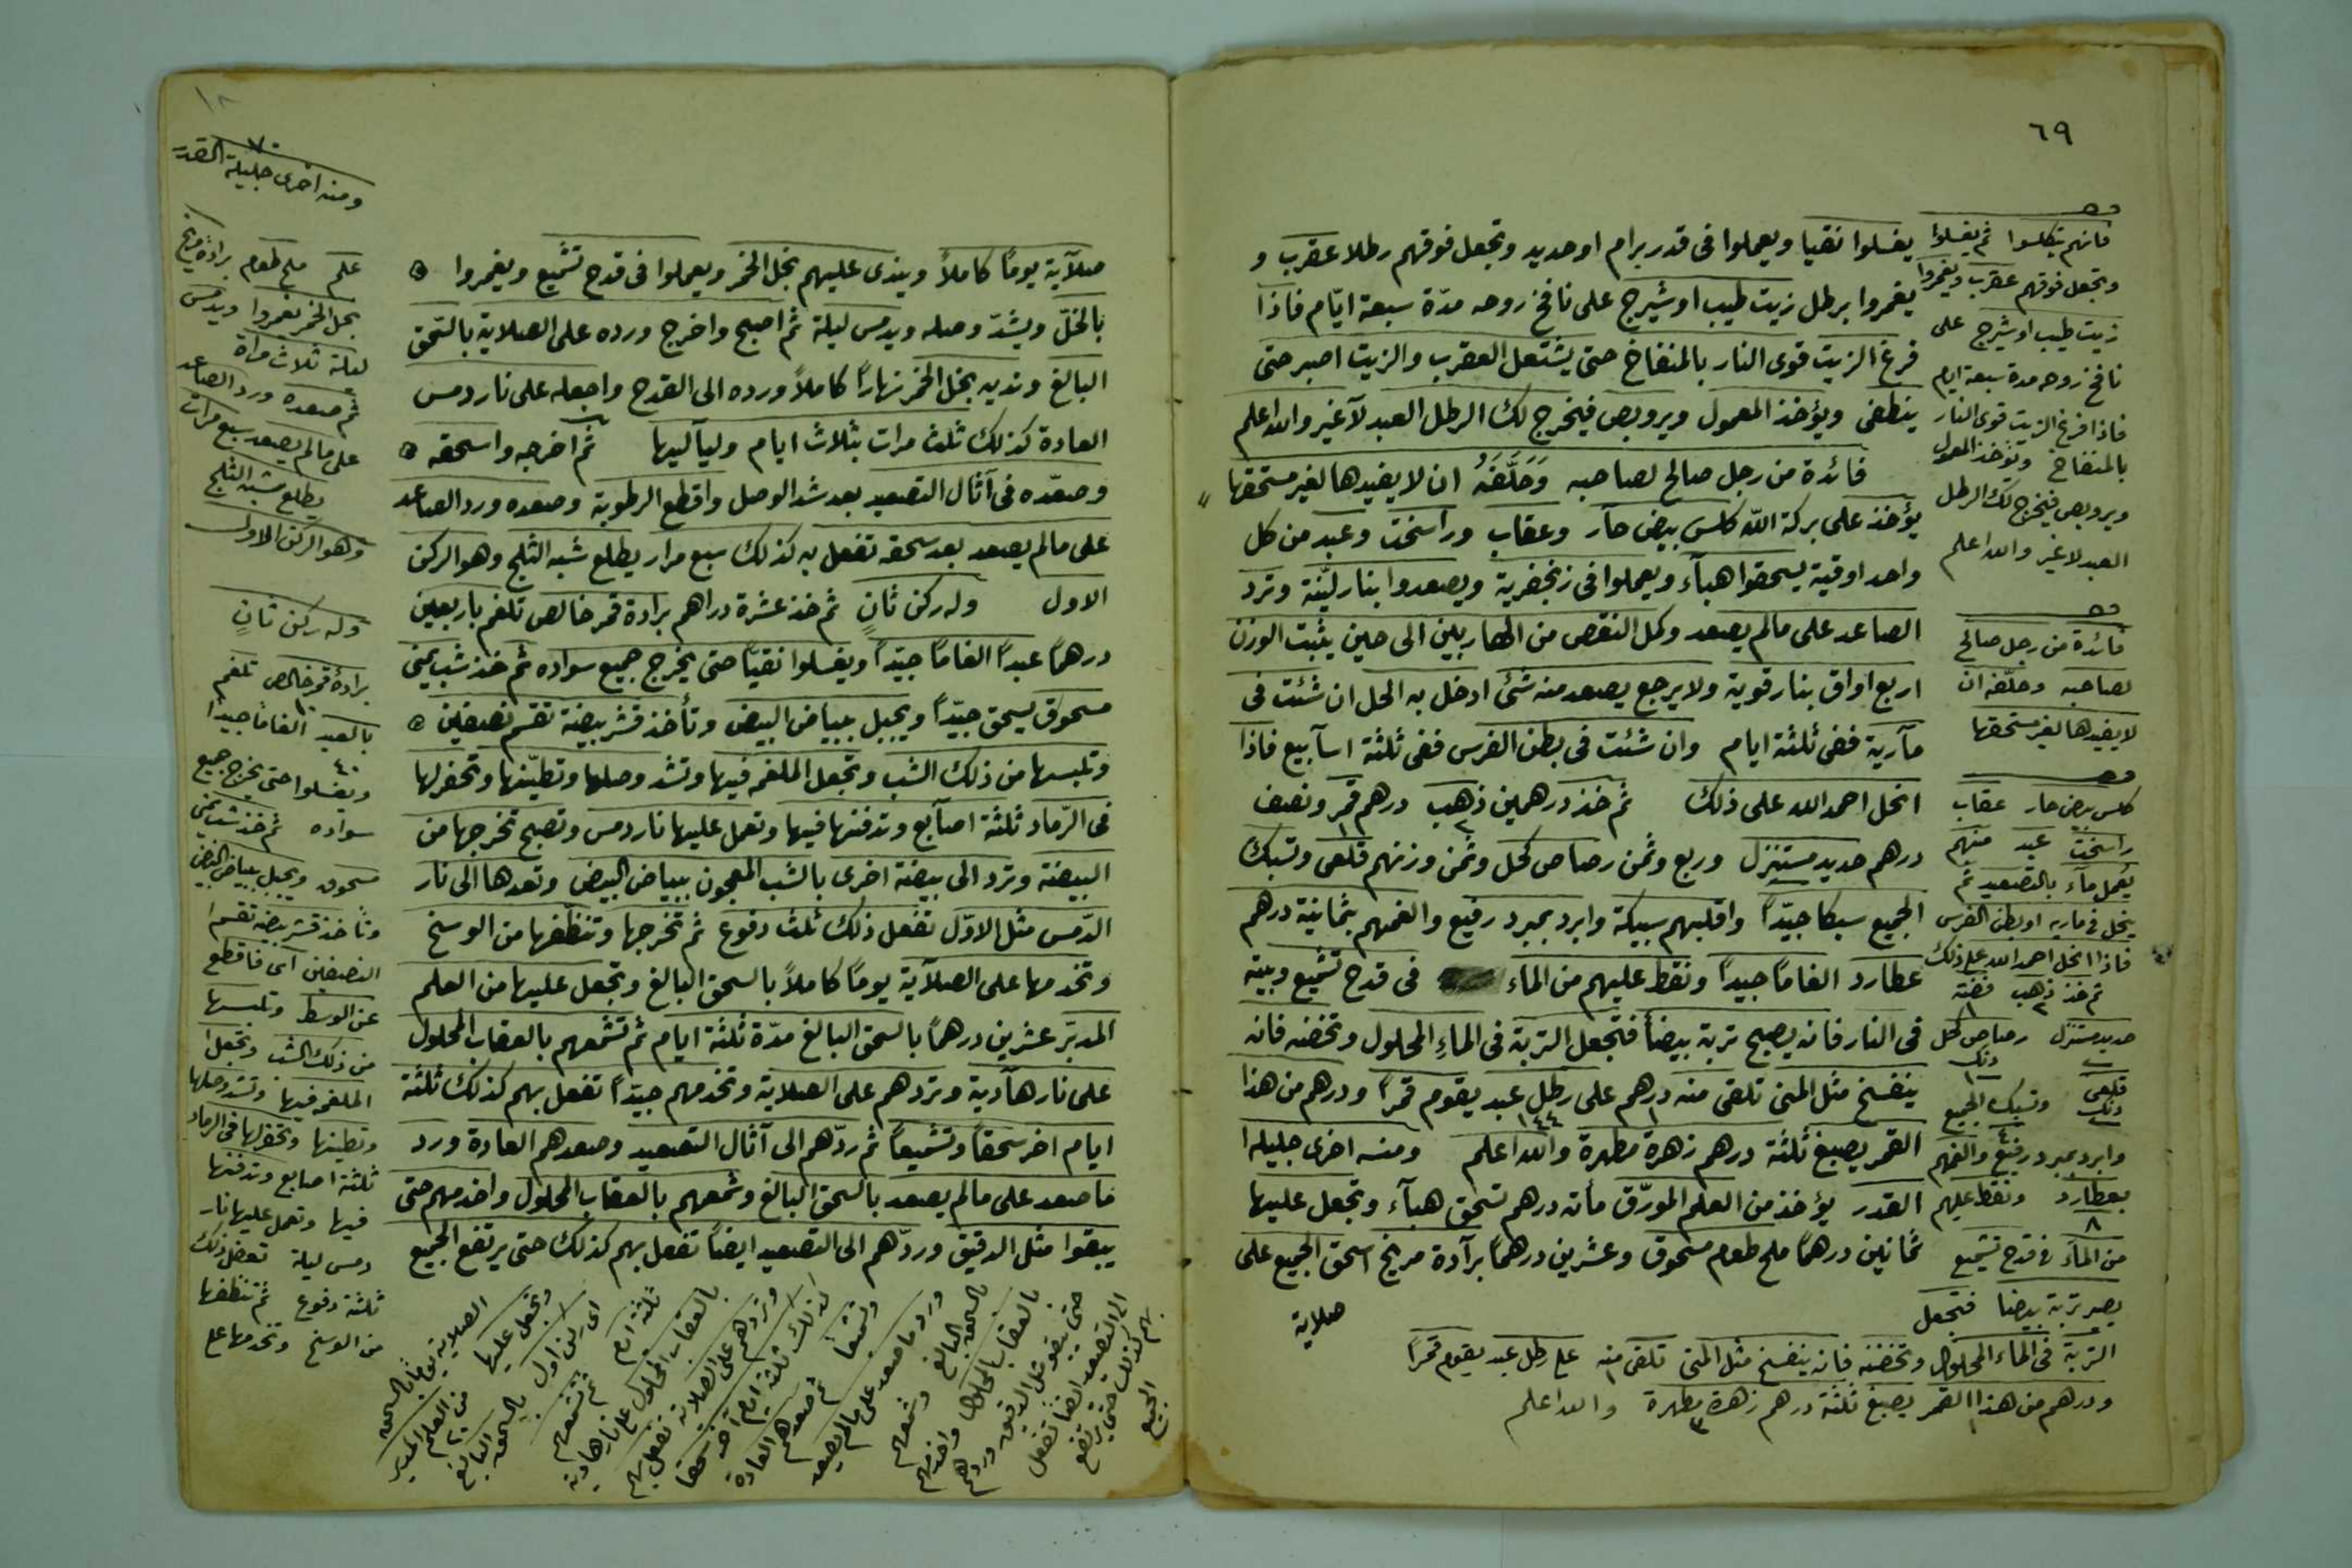 ٦٩
يغسلوا نقيا ويعملوا فى قدر برام او حديد وتجعل فوقهم رطلا عقرب و
يغمروا برطل زيت طيب او شيرج على نافخ روحه مدّة سبعة ايّام فاذا
فرغ الزيت قوى النار بالمنفاخ حتى يشتعل العقرب والزيت اصبر حتى
ينطفى ويؤخذ المعمول ويروبص فيخرج لك الرطل العبد لآغير والله اعلم
فائدة من رجل صالح لصاحبه وَحَلَّفَهُ ان لا يفيدها لغير مستحقها
يؤخذ على بركة اللّه كلس بيض حآر وعقاب وراسخت وعبد من كل
واحد اوقية يسحقوا هبآء ويعملوا فى زنجفرية ويصعدوا بنار ليّنة وترد
الصاعد على مالم يصعد وكمل النقص من الهاربين الى حين يثبت الوزن
اربع اواق بنار قوية ولا يرجع يصعد منه شئ ادخل به الحل ان شئت فى
مآرية ففى ثلثة ايام وان شئت فى بطن الفرس ففى ثلثة اسآبيع فاذا
انحل احمد الله على ذلك ثم خذ درهمين ذهب درهم قمر ونصف
درهم حديد مستنزل وربع وثمن رصاص كحل وثمن وزنهم قلعى وتسبك
الجميع سبكا جيّداً واقلبهم سبيكة وابرد بمبرد رفيع والغمهم بثمانية درهم
عطارد الغامًا جيداً ونقط عليهم من الماء فى قدح تشميع وبيته
فى النار فانه يصبح تربة بيضاً فتجعل التربة فى الماءِ المحلول وتخضه فانه
ينفسخ مثل المنى تلقى منه درهم على رطل عبد يقوم قمراً ودرهم من هذا
١٤٤
القمر يصبغ ثلثة درهم زهرة مطهرة والله اعلم ومنه اخرى جليلة ا
القدر يؤخذ من العلم المورّق مأته درهم تسحق هبآء وتجعل عليها
ثمانين درهمًا ملح طعام مسحوق وعشرين درهمًا برآدة مريخ اسحق الجميع على
صلاية
فانهم يتكلسوا ثم يغسلوا
وتجعل فوقهم عقرب ويغمروا
زيت طيب او شيرج على
نافخ روحه مدة سبعة ايام
فاذا فرغ الزيت قوى النار
بالمنفاخ ويؤخذ المعمول
ويروبص فيخرج لك الرطل
العبد لا غير والله اعلم
فائدة من رجل صالح
لصاحبه وحلّفه ان
لا يفيدها لغير مستحقها
كلس بيض حار عقاب
راسخت عبد منهم
يعمل مآء بالتصعيد ثم
ينحل فى ماريه او بطن الفرس
فاذا انحل احمد الله على ذلك
ثم خذ ذهب فضة
حديد مستنزل رصاص كحل
قلعى وتسبك الجميع
وابرد بمبرد رفيع والغمهم
بعطارد ونقط عليهم
٨
من المآء فى قدح تشميع
يصير تربة بيضا فتجعل
التربة فى الماء المحلول وتخضه فانه ينفسخ مثل المنى تلقى منه على رطل عبد يقوم قمراً
ودرهم من هذا القمر يصبغ ثلثة درهم زهرة مطهرة والله اعلم
٧٠
صلآية يومًا كاملاً ويندى عليهم بخل الخمر ويعملوا فى قدح تشميع ويغمروا
بالخلّ ويشدّ وصله ويدمس ليلة ثم اصبح واخرج ورده على الصلاية بالسّحق
البالغ ونديه بخل الخمر نهارًا كاملاً ورده الى القدح واجعله على نار دمس
العادة كذلك ثلث مرات بثلاث ايام ولياليها ثم اخرجه واسحقه
وصعّده فى آثال التصعيد بعد شد الوصل واقطع الرطوبة وصعده ورد الصاعد
على مالم يصعد بعد سحقه تفعل به كذلك سبع مرار يطلع شبه الثلج وهو الركن
الاول وله ركن ثانٍ ثم خذ عشرة دراهم برادة قمر خالص تلغم باربعين
درهمًا عبداً الغامًا جيّداً ويغسلوا نقيّا حتى يخرج جميع سواده ثم خذ شب يمنى
مسحوق يسحق جيّداً ويجبل ببياض البيض وتأخذ قشر بيضة تقسم نصيفين
وتلبسها من ذلك الشب وتجعل الملغمه فيها وتشد وصلها وتطيّنها وتحفر لها
فى الرّماد ثلثة اصآبع وتدفنها فيها وتعمل عليها نار دمس وتصبح تخرجها من
البيضة وترد الى بيضة اخرى بالشب المعجون ببياض البيض وتعدها الى نار
الدّمس مثل الاوّل تفعل ذلك ثلث دفوع ثم تخرجها وتنظّفها من الوسخ
وتخدمها على الصلآية يومًا كاملاً بالسحق البالغ وتجعل عليها من العلم
المدبّر عشرين درهمًا بالسحق البالغ مدّة ثلثة ايام ثم تشمعهم بالعقاب المحلول
على نار هآدية وتردهم على الصلاية وتخدمهم جيّداً تفعل بهم كذلك ثلثة
ايام اخر سحقًا وتشميعاً ثم ردّهم الى آثال التصعيد وصعدهم العادة ورد
ما صعد على مالم يصعد بالسحق البالغ وشمعهم بالعقاب المحلول واخدمهم حتى
يبقوا مثل الدقيق وردّهم الى التصعيد ايضًا تفعل بهم كذلك حتى يرتفع الجميع
ومنه اخرى جليلة القدر
علم ملح طعام برادة مريخ
بخل الخمر يغمروا ويدمس
ليلة ثلاث مراة
ثم صعده ورد الصاعد
على مالم يصعد سبع مرات
يطلع شبه الثلج
وهو الركن الاول
وله ركن ثانٍ
برادة قمر خالص تلغم
بالعبد الغامًا جيداً
٤٠
ويغسلوا حتى يخرج جميع
سواده ثم خذ شب يمنى
مسحوق ويجبل ببياض البيض
وتأخذ قشر بيضة تقسم
النصيفين اى فاقطع
عن الوسط وتلبسها
من ذلك الشب وتجعل
الملغمه فيها وتشد وصلها
وتطينها وتحفر لها فى الرماد
ثلثة اصابع وتدفنها
فيها وتعمل عليها نار
دمس ليلة تفعل ذلك
ثلثة دفوع ثم تنظفها
من الوسخ وتخدمها على
الصلاية يومًا بالسحق
وتجعل عليها من العلم المدبر
اى ركن اول بالسحق البالغ
ثلثة ايام ثم تشمعهم
بالعقاب المحلول على نار هادية
وتردهم على الصلاية تفعل بهم
كذلك ثلثة ايام آخر سحقا
وتشميعًا ثم صعدهم العادة
ورد ما صعد على مالم يصعد
بالسحق البالغ وشمعهم
بالعقاب المحلول واخدمهم
حتى يبقو مثل الدقيق وردهم
الى التصعيد ايضًا تفعل
بهم كذلك حتى يرتفع
الجميع